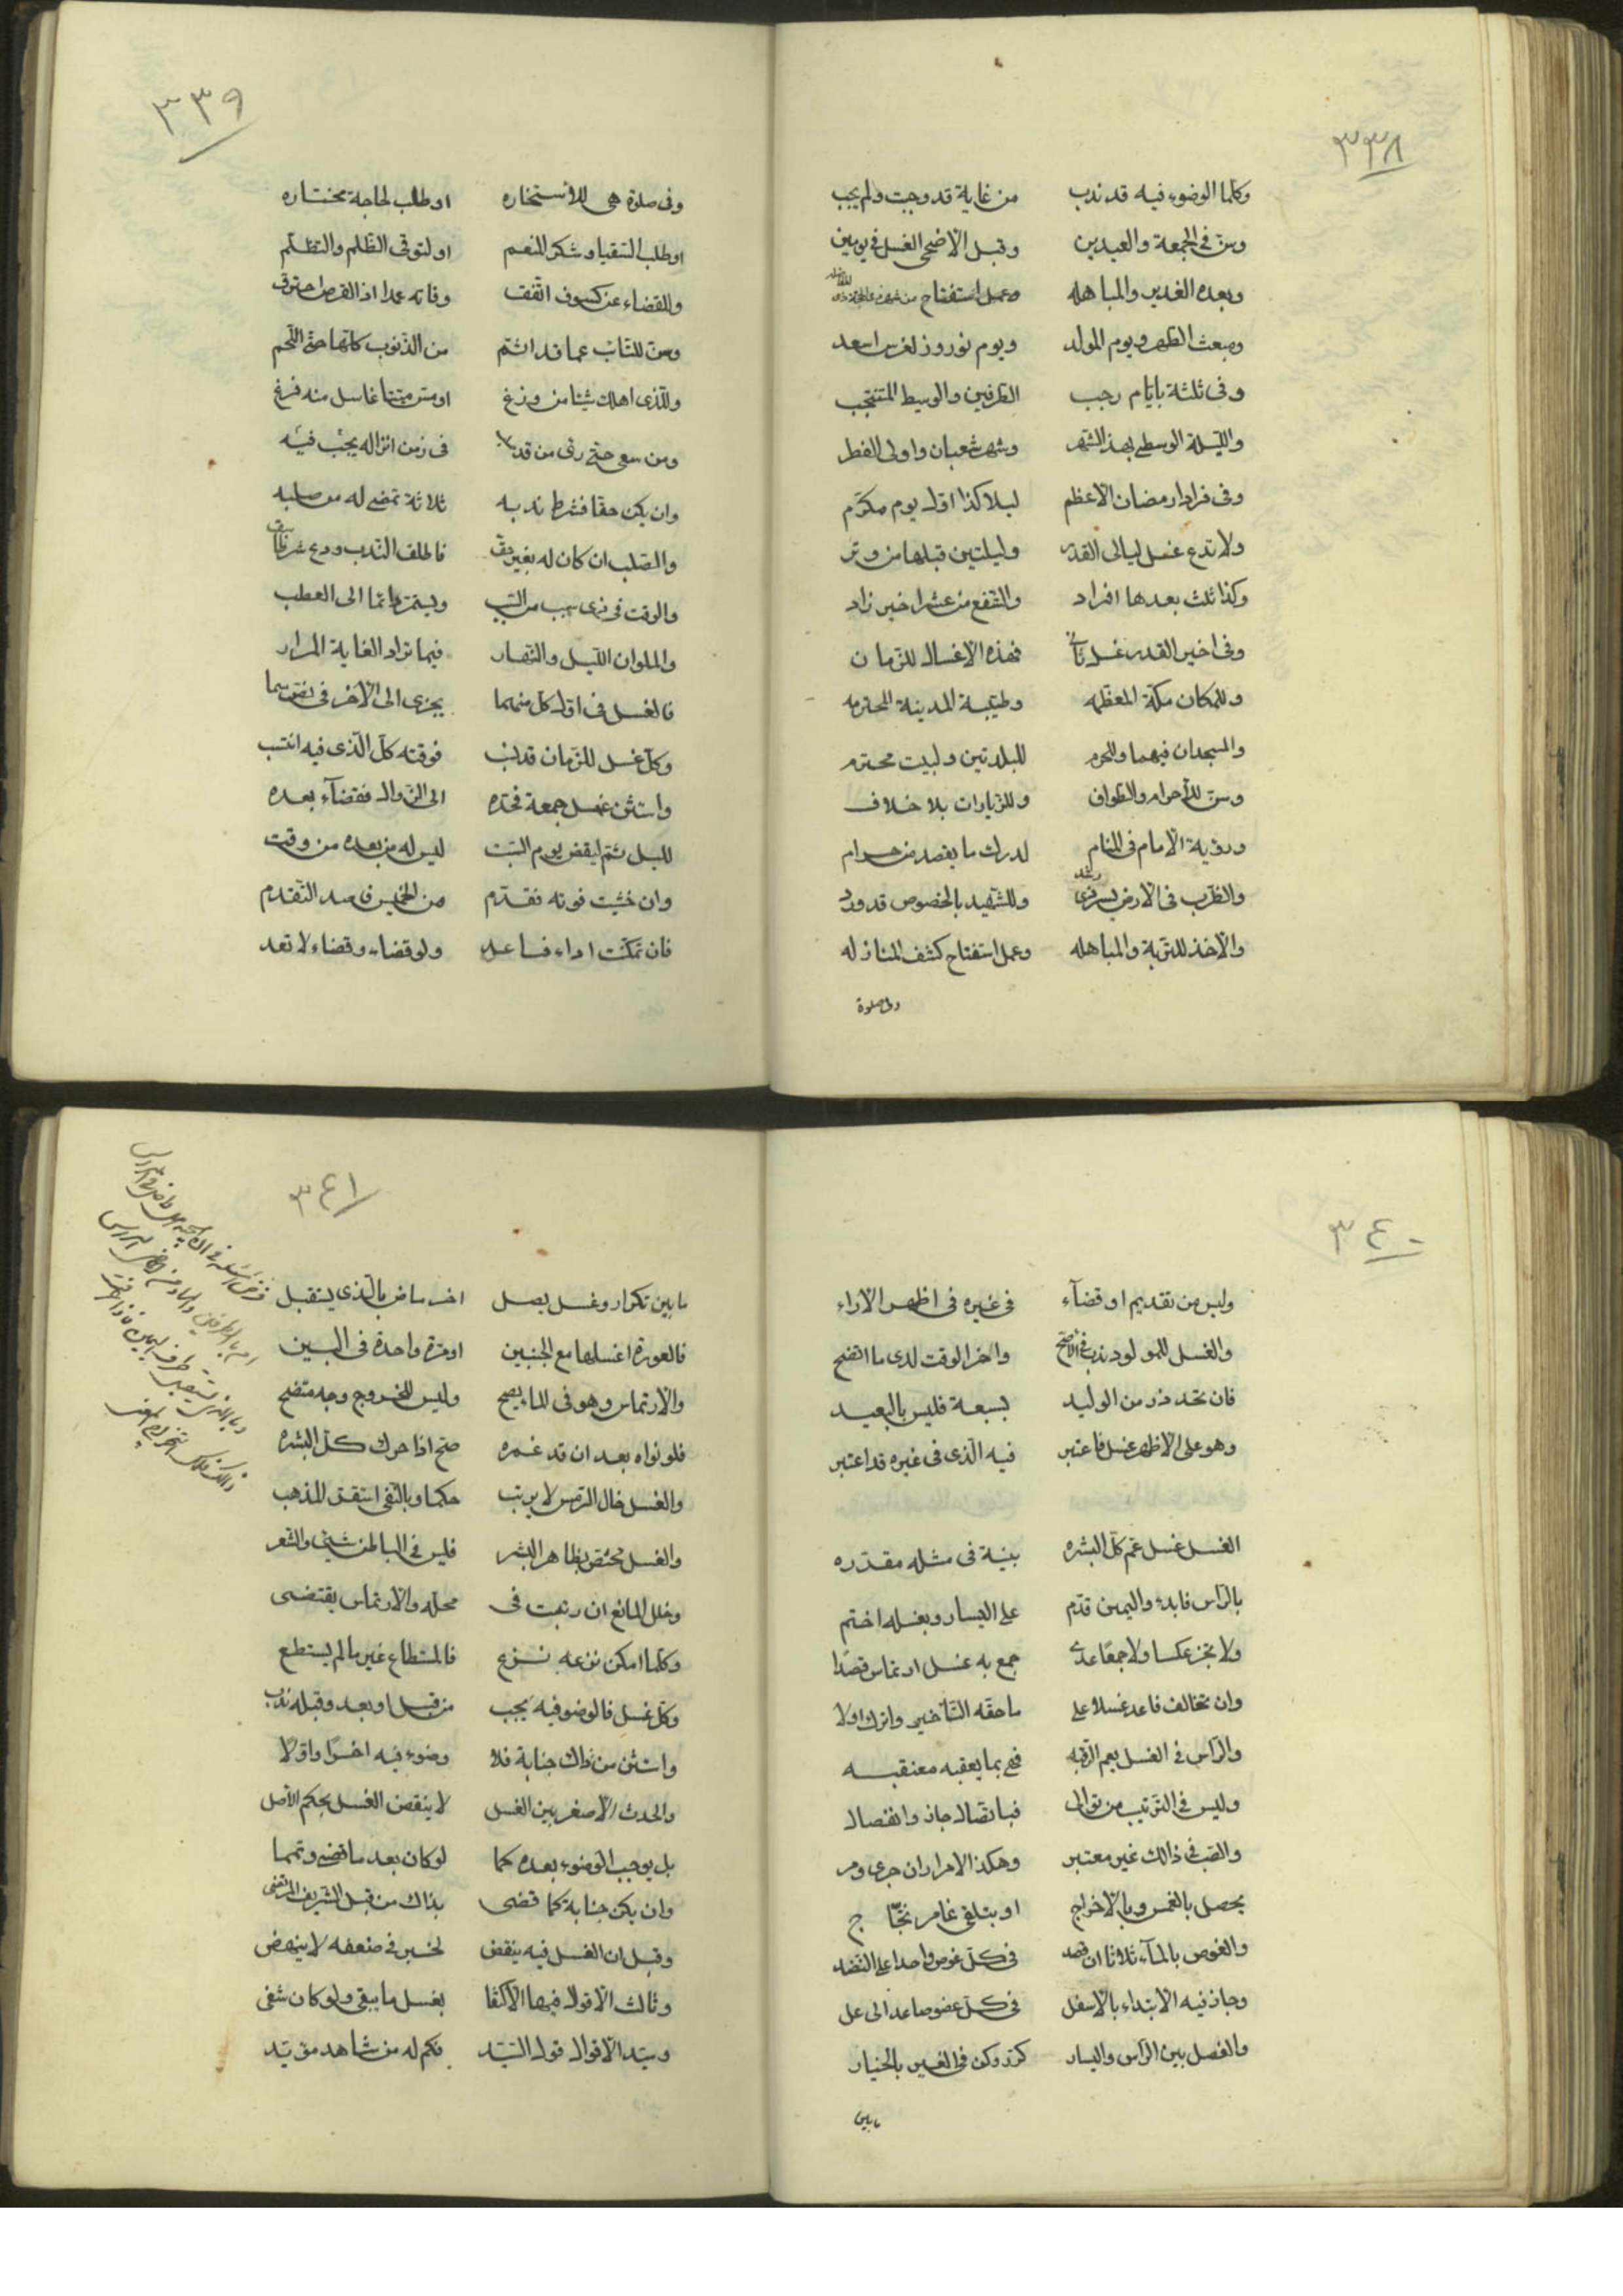 ٣٣٨
وكلما الوضوء فيه قد ندب من غاية قد وجبت ولم يجب
وسن فى الجمعة والعيدين وقبل الاضحى الغسل فى يومين
وبعده الغدير والمباهله وعمل استفتاح
ومبعث الطهر ويوم المولد ويوم نوروز لغرس اسعد
وفى ثلثة بايام رجب الطرفين والوسيط المنتجب
والليلة الوسطى بهذا الشهر وشهر شعبان واولى الفطر
وفى فرادا رمضان الاعظم ليلا كذا اول يوم مكرم
ولا تدع غسل ليالى القدر وليلتين قبلها من وتر
وكذا ثلث بعدها افراد والشفع من عشر اخير زاد
وفى اخير القدر غسل ثانى فهذه الاغسال للزمان
وللمكان مكة المعظمه وطيبة المدينة المحترمه
والمسجدان فيهما والحرم للبلدتين ولبيت محترم
وسن للأحرام والطواف وللزيارات بلا خلاف
ورؤية الامام فى المنام لدرك ما يقصد من مرام
والقرب فى الارض وللشهيد بالخصوص قد ورد
والاخذ للتربة والمباهله وعمل استفتاح كشف النازله
وفى صلوة
٣٣٩
وفى صلوة هى للاستخاره او طلب لحاجة مختاره
او طلب السقيا وشكر المنعم او لتوقى الظلم والتظلم
وللقضاء عن كسوف اتفق وفاته عمدا اذ القرص احترق
وسن للتائب عما قد اثم من الذنوب كلها حتى اللمم
وللذى اهلك شيئا من وزغ او مس ميتا غاسل منه فرغ
ومن سعى حتى رأى من قد صلب فى زمن انزاله يجب فيه
وان يكن حقا فشرط ندبه ثلاثة تمضى له من صلبه
والصلب ان كان له بغير حق فاطلق الندب ودع شرطا
والوقت فى ذى سبب من السبب ويستمر دائما الى العطب
والملوان الليل والنهار فيما تراد الغاية المرار
فالغسل فى اول كل منهما يجزى الى الآخر فى نفسهما
وكل غسل للزمان قد ندب فوقته كل الذى فيه انتسب
واستثن غسل جمعة فحده الى الزوال فقضآء بعده
لليل ثم ليقض يوم السبت ليس له من بعده من وقت
وان خشيت فوته فقدم من الخميس قاصد التقدم
فان تمكنت اداء فاعد ولو قضاء وقضاء لا تعد
٣٤٠
وليس من تقديم او قضآء فى غيره فى اظهر الاراء
والغسل للمولود ندب فى الاصح واخر الوقت لدى ما اتضح
فان تحدد ذو من الوليد بسبعة فليس بالبعيد
وهو على الاظهر غسل فاعتبر فيه الذى فى غيره قد اعتبر
الغسل غسل عم كل البشره بنية فى مثله مقدره
بالرأس فابدء واليمين قدم على اليسار وبغسله اختم
ولا تجز عكسا ولا جمعًا عدى جمع به غسل ارتماس قصدا
وان تخالف فاعد غسلا على ما حقه التأخير واترك اولا
والرأس فى الغسل يعم الرقبه فهى بما يعقبه معتقبه
وليس فى الترتيب من توالى فباتصال جاز وانفصال
والصب فى ذالك غير معتبر وهكذا الامرار ان جرى ومر
يحصل بالغمس وبالاخراج او بتلقى غامر نجاج
والغوص بالماء ثلاثا ان قصد فى كل غوص واحدا على النضد
وجاز فيه الابتداء بالاسفل فى كل عضو صاعدا الى على
والفصل بين الرأس واليسار كرر وكن فى الغير بالخيار
مابين
٣٤١
ما بين تكرار وغسل يصل اخر ماض بالذى يستقبل
فالعورة اغسلها مع الجنبين او مرة واحدة فى البين
والارتماس وهو فى الماء يصح وليس للخروج وجه متضح
فلو نواه بعد ان قد غمره صح اذا حرك كل البشره
والغسل حال الرمس لا يرتب حكما وبالنفى استقر المذهب
والغسل مختص بظاهر البشر فليس فى الباطن شيئ والشعر
وخلل المانع ان رتبت فى محله والارتماس يقتضى
وكلما امكن نزعه نزع فالمستطاع غير ما لم يستطع
وكل غسل فالوضو فيه يجب من قبل او بعد وقبله ندب
واستثن من ذاك جنابة فلا وضوء فيه اخرًا واولًا
والحدث الاصغر بين الغسل لا ينقض الغسل بحكم الأصل
بل يوجب الوضوء بعده كما لو كان بعد ما قضى وتمما
وان يكن جنابة كما قضى بذاك من قبل الشريف المرتضى
وقيل ان الغسل فيه ينقض لخبر فى ضعفه لا ينهض
وثالث الاقوال فيها الاكتفا بغسل ما يبقى ولو كان شفى
وسيد الاقوال قول السيد فكم له من شاهد مؤيد